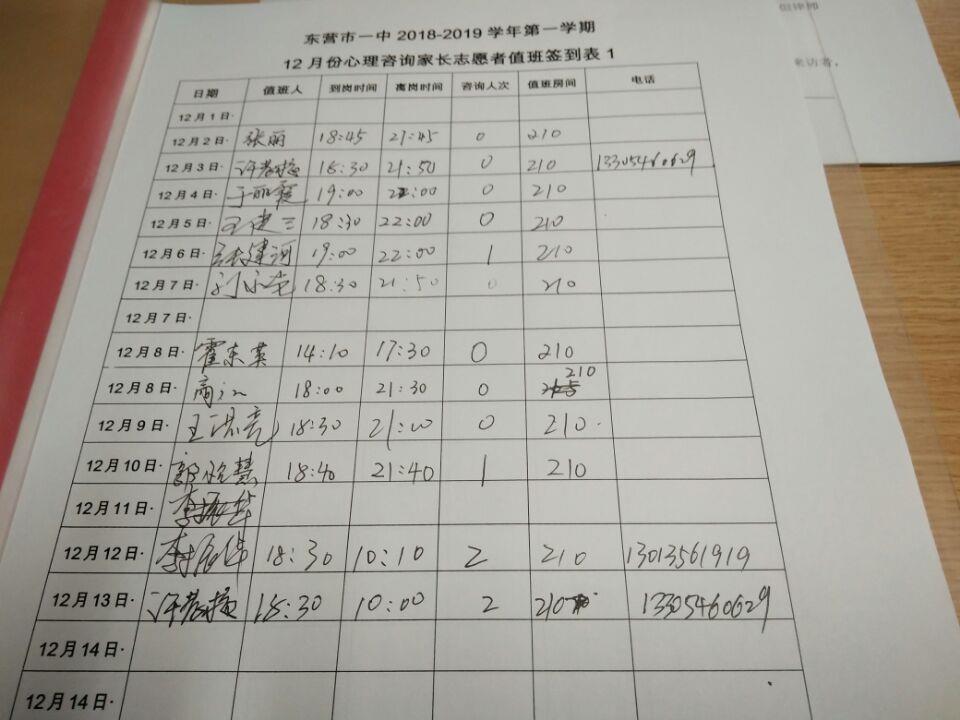 恒律师
来访者,
东营市一中 2018-2019 学年第一学期
12 月份心理咨询家长志愿者值班签到表 1
日期 值班人 到岗时间 离岗时间 咨询人次 值班房间 电话
12 月 1 日·
12 月 2 日· 张丽 18:45 21:45 0 210
12 月 3 日· 18:30 21:50 0 210 13305460629
12 月 4 日· 于丽霞 19:00 22:00 0 210
12 月 5 日· 王建三 18:30 22:00 0 210
12 月 6 日· 张建河 19:00 22:00 1 210
12 月 7 日· 18:30 21:50 0 210
12 月 7 日·
12 月 8 日· 霍东英 14:10 17:30 0 210
12 月 8 日· 18:00 21:30 0 210
12 月 9 日· 王洪亮 18:30 21:00 0 210
12 月 10 日· 18:40 21:40 1 210
12 月 11 日·
12 月 12 日· 18:30 10:10 2 210 13013561919
12 月 13 日· 18:30 10:00 2 210 13305460629
12 月 14 日·
12 月 14 日·